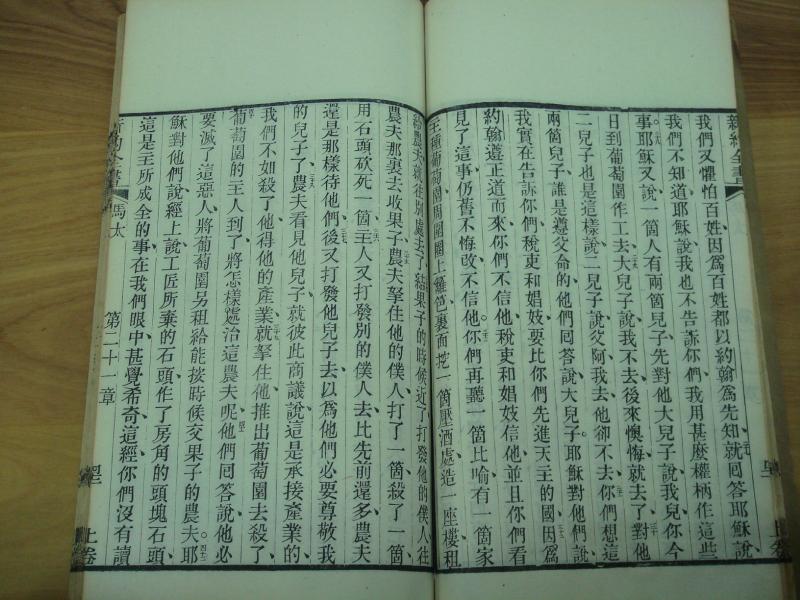 新約全書
上卷
我們又懼怕百姓、因爲百姓都以約翰爲先知、就回答耶穌說、
我們不知道、耶穌說、我也不告訴你們、我用甚麼權柄作這些
事。耶穌又說、一箇人有兩箇兒子、先對他大兒子說、我兒、你今
日到葡萄園作工去、大兒子說、我不去、後來懊悔、就去了、對他
二兒子也是這樣說、二兒子說、父阿、我去、他卻不去、你們想這
兩箇兒子、誰是遵父命的、他們回答說、大兒子。耶穌對他們說、
我實在告訴你們、稅吏和娼妓、要比你們先進天主的國、因爲
約翰遵正道而來、你們不信他、稅吏和娼妓信他、並且你們看
見了這事、仍舊不悔改、不信他。你們再聽一箇比喻、有一箇家
主、種葡萄園、周圍圈上籬笆、裏面挖一箇壓酒處、造一座樓、租
給農夫、就往別處去了、結果子的時候近了、打發他的僕人、往
農夫那裏去收果子、農夫拏住他的僕人、打了一箇、殺了一箇、
用石頭砍死一箇、主人又打發別的僕人去、比先前還多、農夫
還是那樣待他們、後又打發他兒子去、以爲他們必要尊敬我
的兒子了、農夫看見他兒子、就彼此商議說、這是承接產業的、
我們不如殺了他、得他的產業、就拏住他、推出葡萄園去殺了、
葡萄園的主人到了、將怎樣處治這農夫呢、他們回答說、他必
要滅了這惡人、將葡萄園另租給能按時候交果子的農夫。耶
穌對他們說、經上說、工匠所棄的石頭、作了房角的頭塊石頭、
這是主所成全的事、在我們眼中、甚覺希奇、這經你們沒有讀
新約全書 馬太 第二十一章
上卷